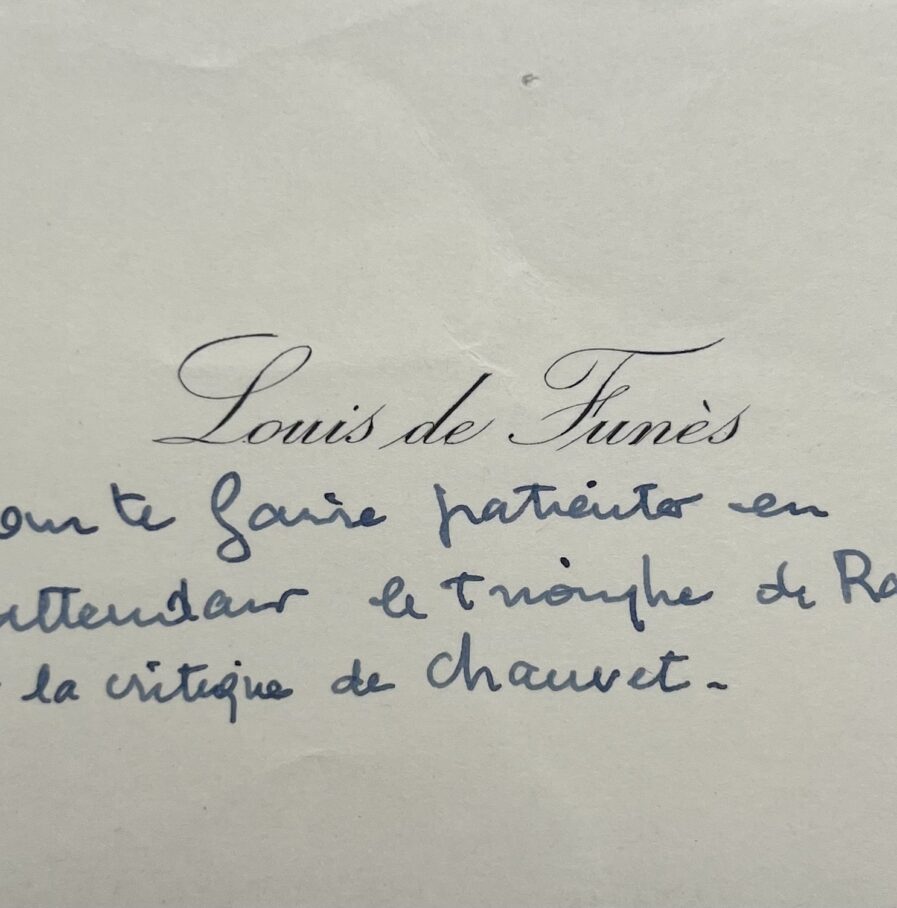 Louis de Funès
our te faire patienter en
attendant le triomphe de Ro
la critique de Chauvet.